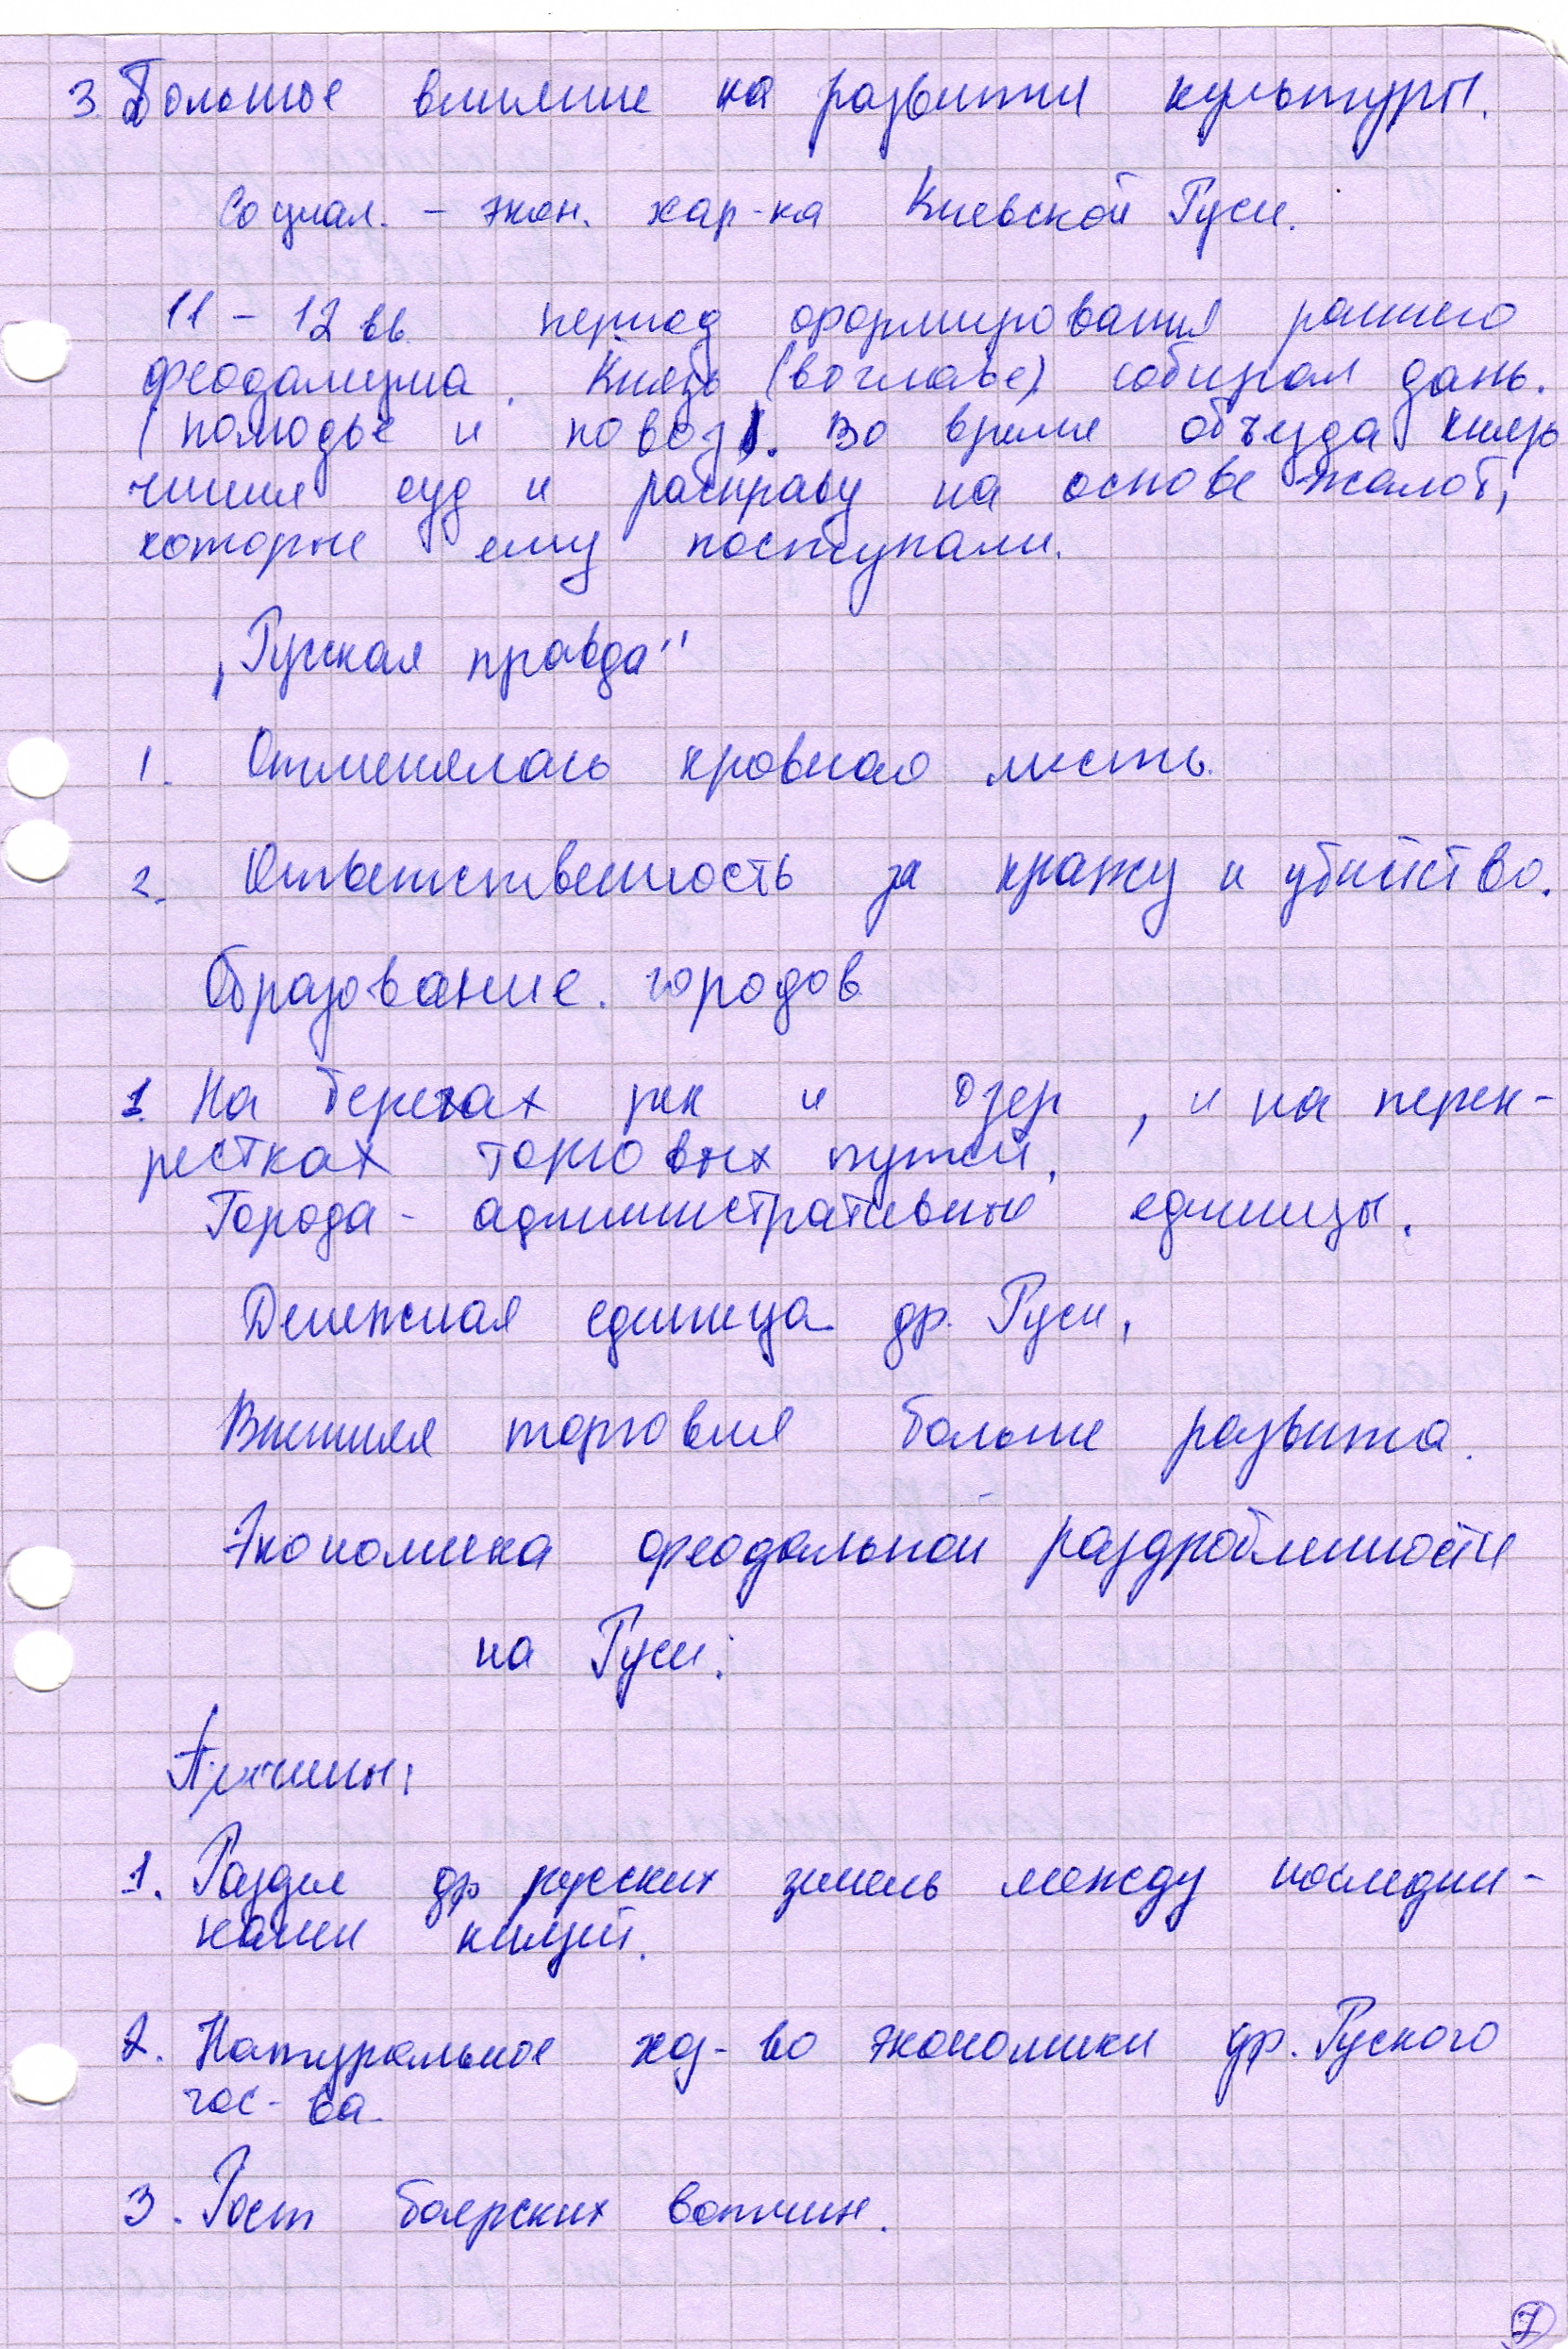 3. Большое влияние на развития культуры.
Социал. - экон. хар-ка Киевской Руси.
11 - 12 вв. период формирования раннего
феодализма. Князь (во главе) собирал дань.
(полюдье и повоз). Во время объезда князь
чинил суд и расправу на основе жалоб,
которые ему поступали.
„Русская правда"
1. Отменялась кровная месть.
2. Ответственность за кражу и убийство.
Образование городов
1. На берегах рек и озер, и на перек-
рестках торговых путей.
Города - административные единицы.
Денежная единица др. Руси,
Внешняя торговля больше развита.
Экономика феодальной раздробленности
на Руси:
Причины:
1. Раздел др русских земель между наследни-
ками князей.
2. Натуральное хоз-во экономики др. Руского
гос-ва.
3. Рост боярских вотчин.
7